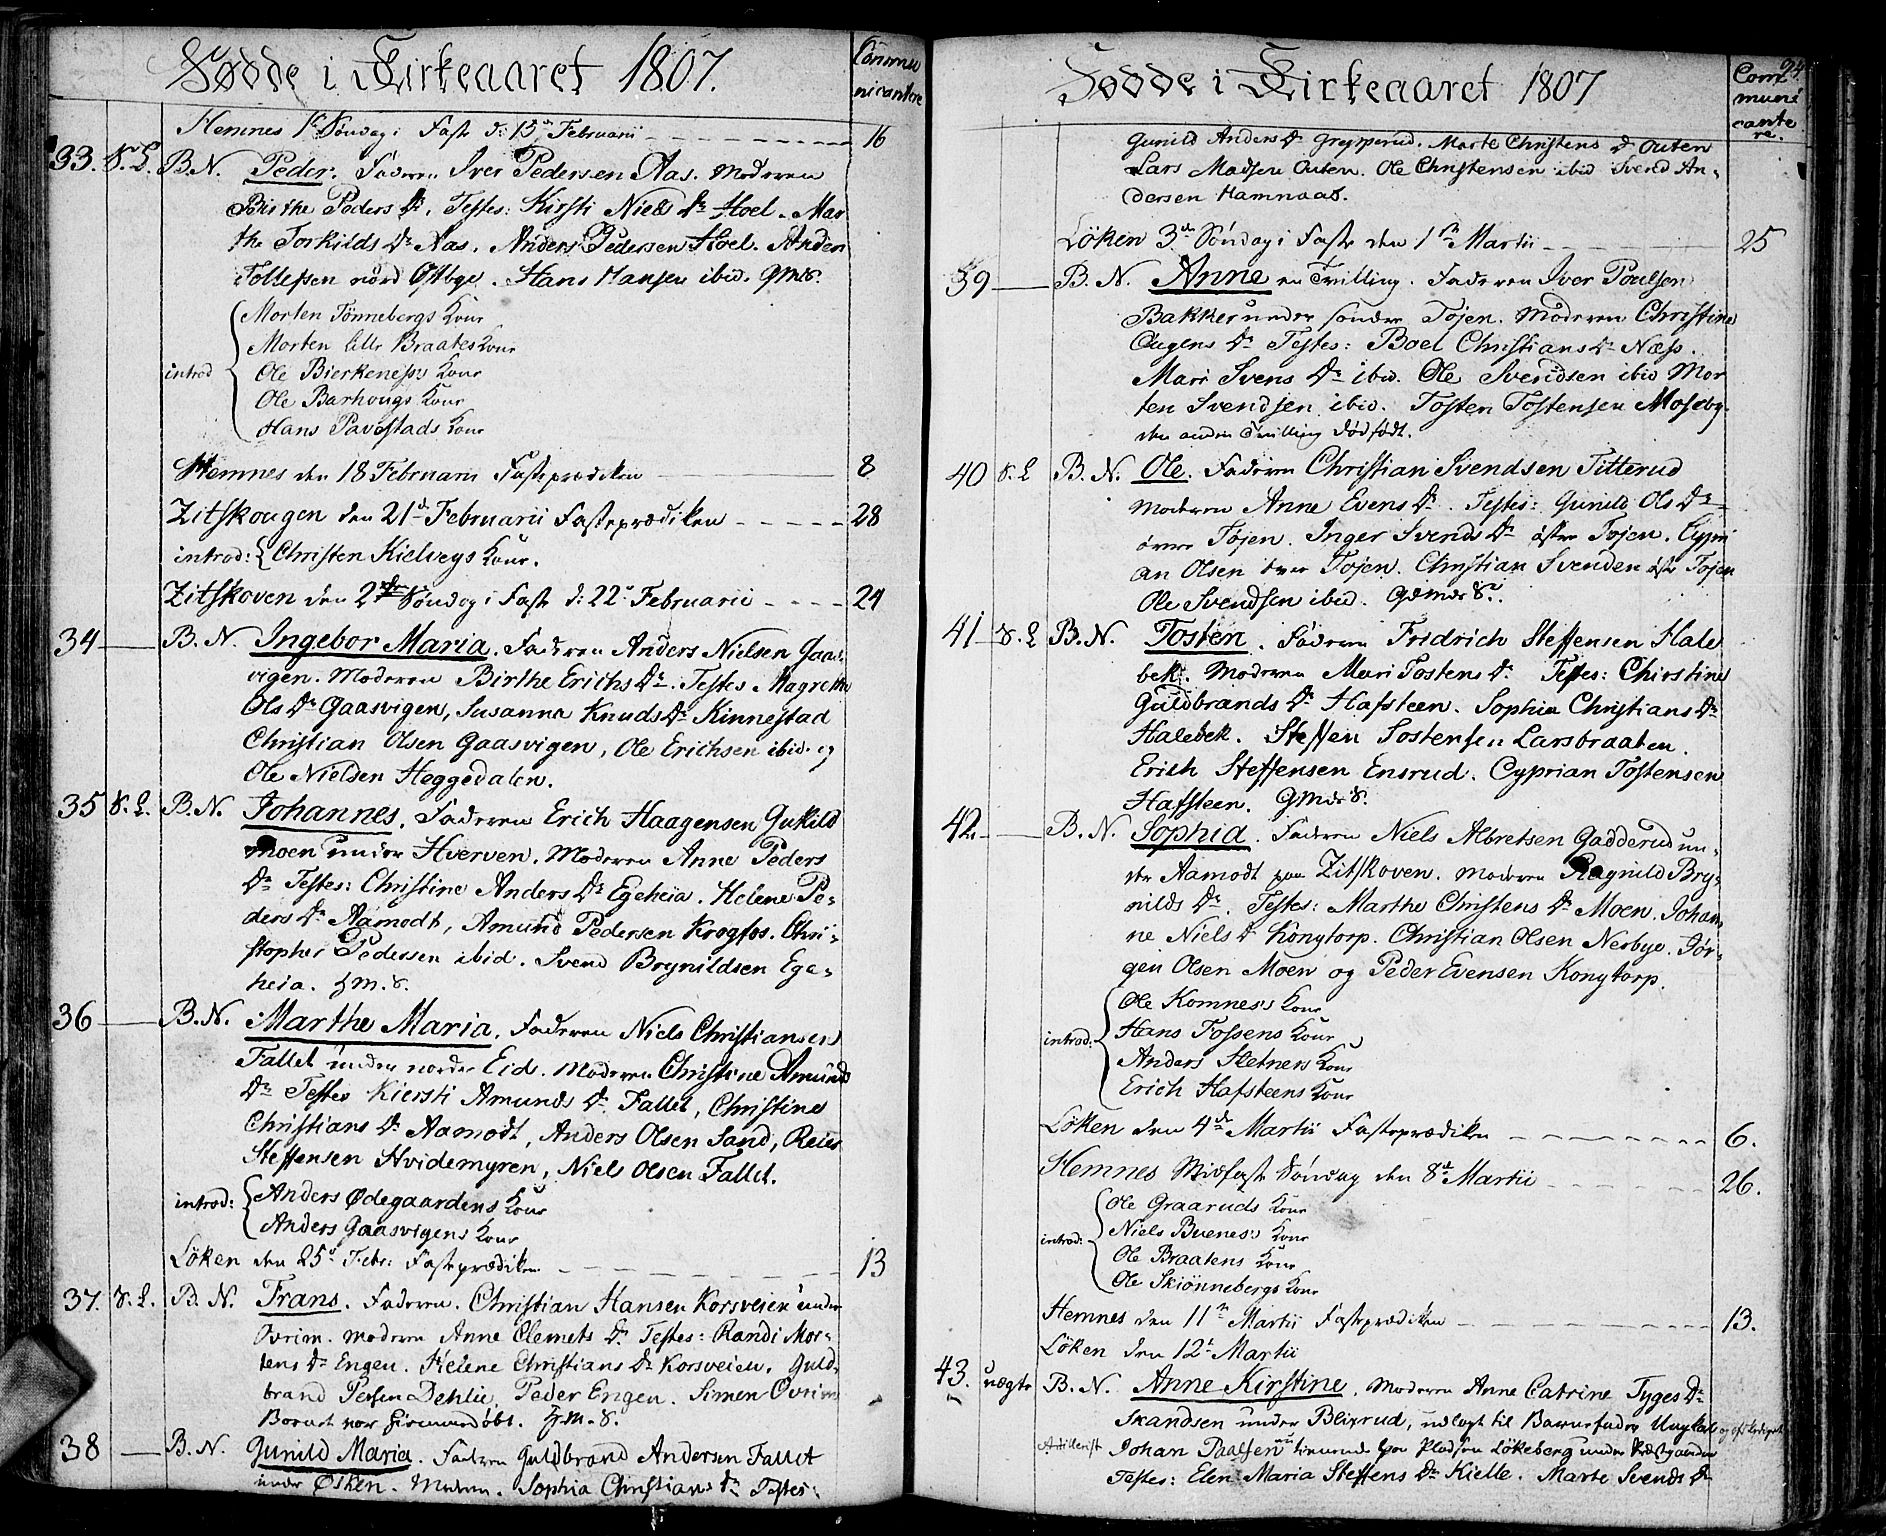 Fødde i Kirkeaaret 1807.
Commu
nicantere
Hemnes 1te Søndag i Faste d: 15de Februarii 16
33. S. L. B. N. Peder. Faderen Iver Pedersen Aas. Moderen
Birthe Peders Dr. Testes: Kirsti Niels Dr Hoel. Mar
the Torkilds Dr Aas. Anders Pedersen Hoel. Anders
Tollefsen nord Østbye. Hans Hansen ibid. GM&S.
Morten Tönnebergs Kone
Morten lille Braates Kone
introd Ole Bierkenefs: Kone
Ole Barhougs Kone
Hans Pavestads Kone
Hemnes den 18 Februarii Fasteprædiken 8
Zitskougen den 21de Februarii Fasteprædiken 28
introd: Christen Kielvegs Kone.
Zitskoven den 2den Søndag i Faste d: 22de Februarii 24
34 B. N. Ingebor Maria. Faderen Anders Nielsen Gaas-
vigen. Moderen Birthe Erichs Dr. Testes Magrethe
Ols Dr Gaasvigen, Susanna Knuds Dr Kinnestad
Christian Olsen Gaasvigen, Ole Erichsen ibid. og
Ole Nielsen Heggedalen.
35 S. L. B. N. Johannes. Faderen Erich Haagensen Gukild
moen under Hverven. Moderen Anne Peders
Dr Testes: Christine Anders Dr Egeheia. Helene Pe-
ders Dr Aamodt, Amund Pedersen Krogfos. Chri-
stopher Pedersen ibid. Svend Brynildsen Ege-
heia. HM.S.
36 B. N. Marthe Maria. Faderen Niels Christiansen
Fallet under nordre Eid. Moderen Christine Amunds
Dr Testes Kiersti Amunds Dr Fallet, Christine
Christians Dr Aamodt, Anders Olsen Sand, Reier
Steffensen Hvidemyren, Niels Olsen Fallet.
introd: Anders Ødegaardens Kone
Anders Gaasvigens Kone
Löken den 25de Febr: Fasteprædiken 13
37. S. L. B. N. Frans. Faderen. Christian Hansen Korsveien under
Ovrim. Moderen Anne Clemets Dr Testes: Randi Mor-
tens Dr Engen. Helene Christians Dr Korsveien. Guld-
brand Jensen Dehlie, Peder Engen. Simen Ovrim
Barnet var hiemmedöbt. HM.S.
38 B. N. Gunild Maria. Faderen Guldbrand Andersen Fallet
under Østen. Moderen. Sophia Christians Dr Testes:
Fødde i Kirkeaaret 1807
94.
Com
muni
cante
re.
Gunild Anders Dr Grepperud. Marte Christens Dr Outen
Lars Madsen Outen. Ole Christensen ibid Svend An-
dersen Hamnaas.
Löken 3de Søndag i Faste den 1te Martii 25
39 B. N. Anne en Tvilling. Faderen Iver Poulsen
Bakker under söndre Töjen. Moderen Christine
Ougens Dr Testes: Boel Christians Dr Næss.
Mari Svens Dr ibid. Ole Svendsen ibid Mor
ten Svendsen ibid. Tosten Tostensen Moseby.
den anden Tvilling dödfödt.
40 S. L B. N. Ole. Faderen Christian Svendsen Titterud
Moderen Anne Evens Dr. Testes: Gunild Ols Dr
övre Töjen. Inger Svends Dr östre Töjen. Cypri
an Olsen övre Töjen. Christian Svendsen östr Töjen
Ole Svendsen ibid. GM&S.
41 S. L B. N. Tosten. Faderen Fridrich Steffensen Hale
bek. Moderen Mari Tostens Dr Testes: Chirstine
Guldbrands Dr Hafsteen. Sophia Christians Dr
Halebek. Steffen Tostensen Larsbraaten.
Erich Steffensen Ensrud. Cyprian Tostensen
Hafsteen. GM&S.
42. B. N. Sophia. Faderen Niels Albretsen Gadderud un-
der Aamodt paa Zitskoven. Moderen Ragnild Bry-
nilds Dr. Testes: Marthe Christens Dr Moen. Johan
ne Niels Dr Kongtorp. Christian Olsen Nerbye. Jör-
gen Olsen Moen og Peder Evensen Kongtorp.
Ole Komnes's Kone
introd: Hans Fossens Kone
Anders Sletners Kone
Erich Hafsteens Kone
Löken den 4de Martii Fasteprædiken 6.
Hemnes Midfaste Søndag den 8de Martii 26.
Ole Graaruds Kone
introd: Niels Buenes's Kone
Ole Braatens Kone
Ole Skiönnebergs Kone
Hemnes den 11te Martii Fasteprædiken 13.
Löken den 12te Martii
43. uægte B. N. Anne Kirstine. Moderen Anne Catrine Tyges Dr
Skandsen under Blixrud, udlagt til Barnefader Ungkarl
Artillerist Johan Paalsen tienende hos Pladsen Lökeberg under Præstgaarden
Testes: Elen Maria Steffens Dr Kielle. Marte Svends Dr